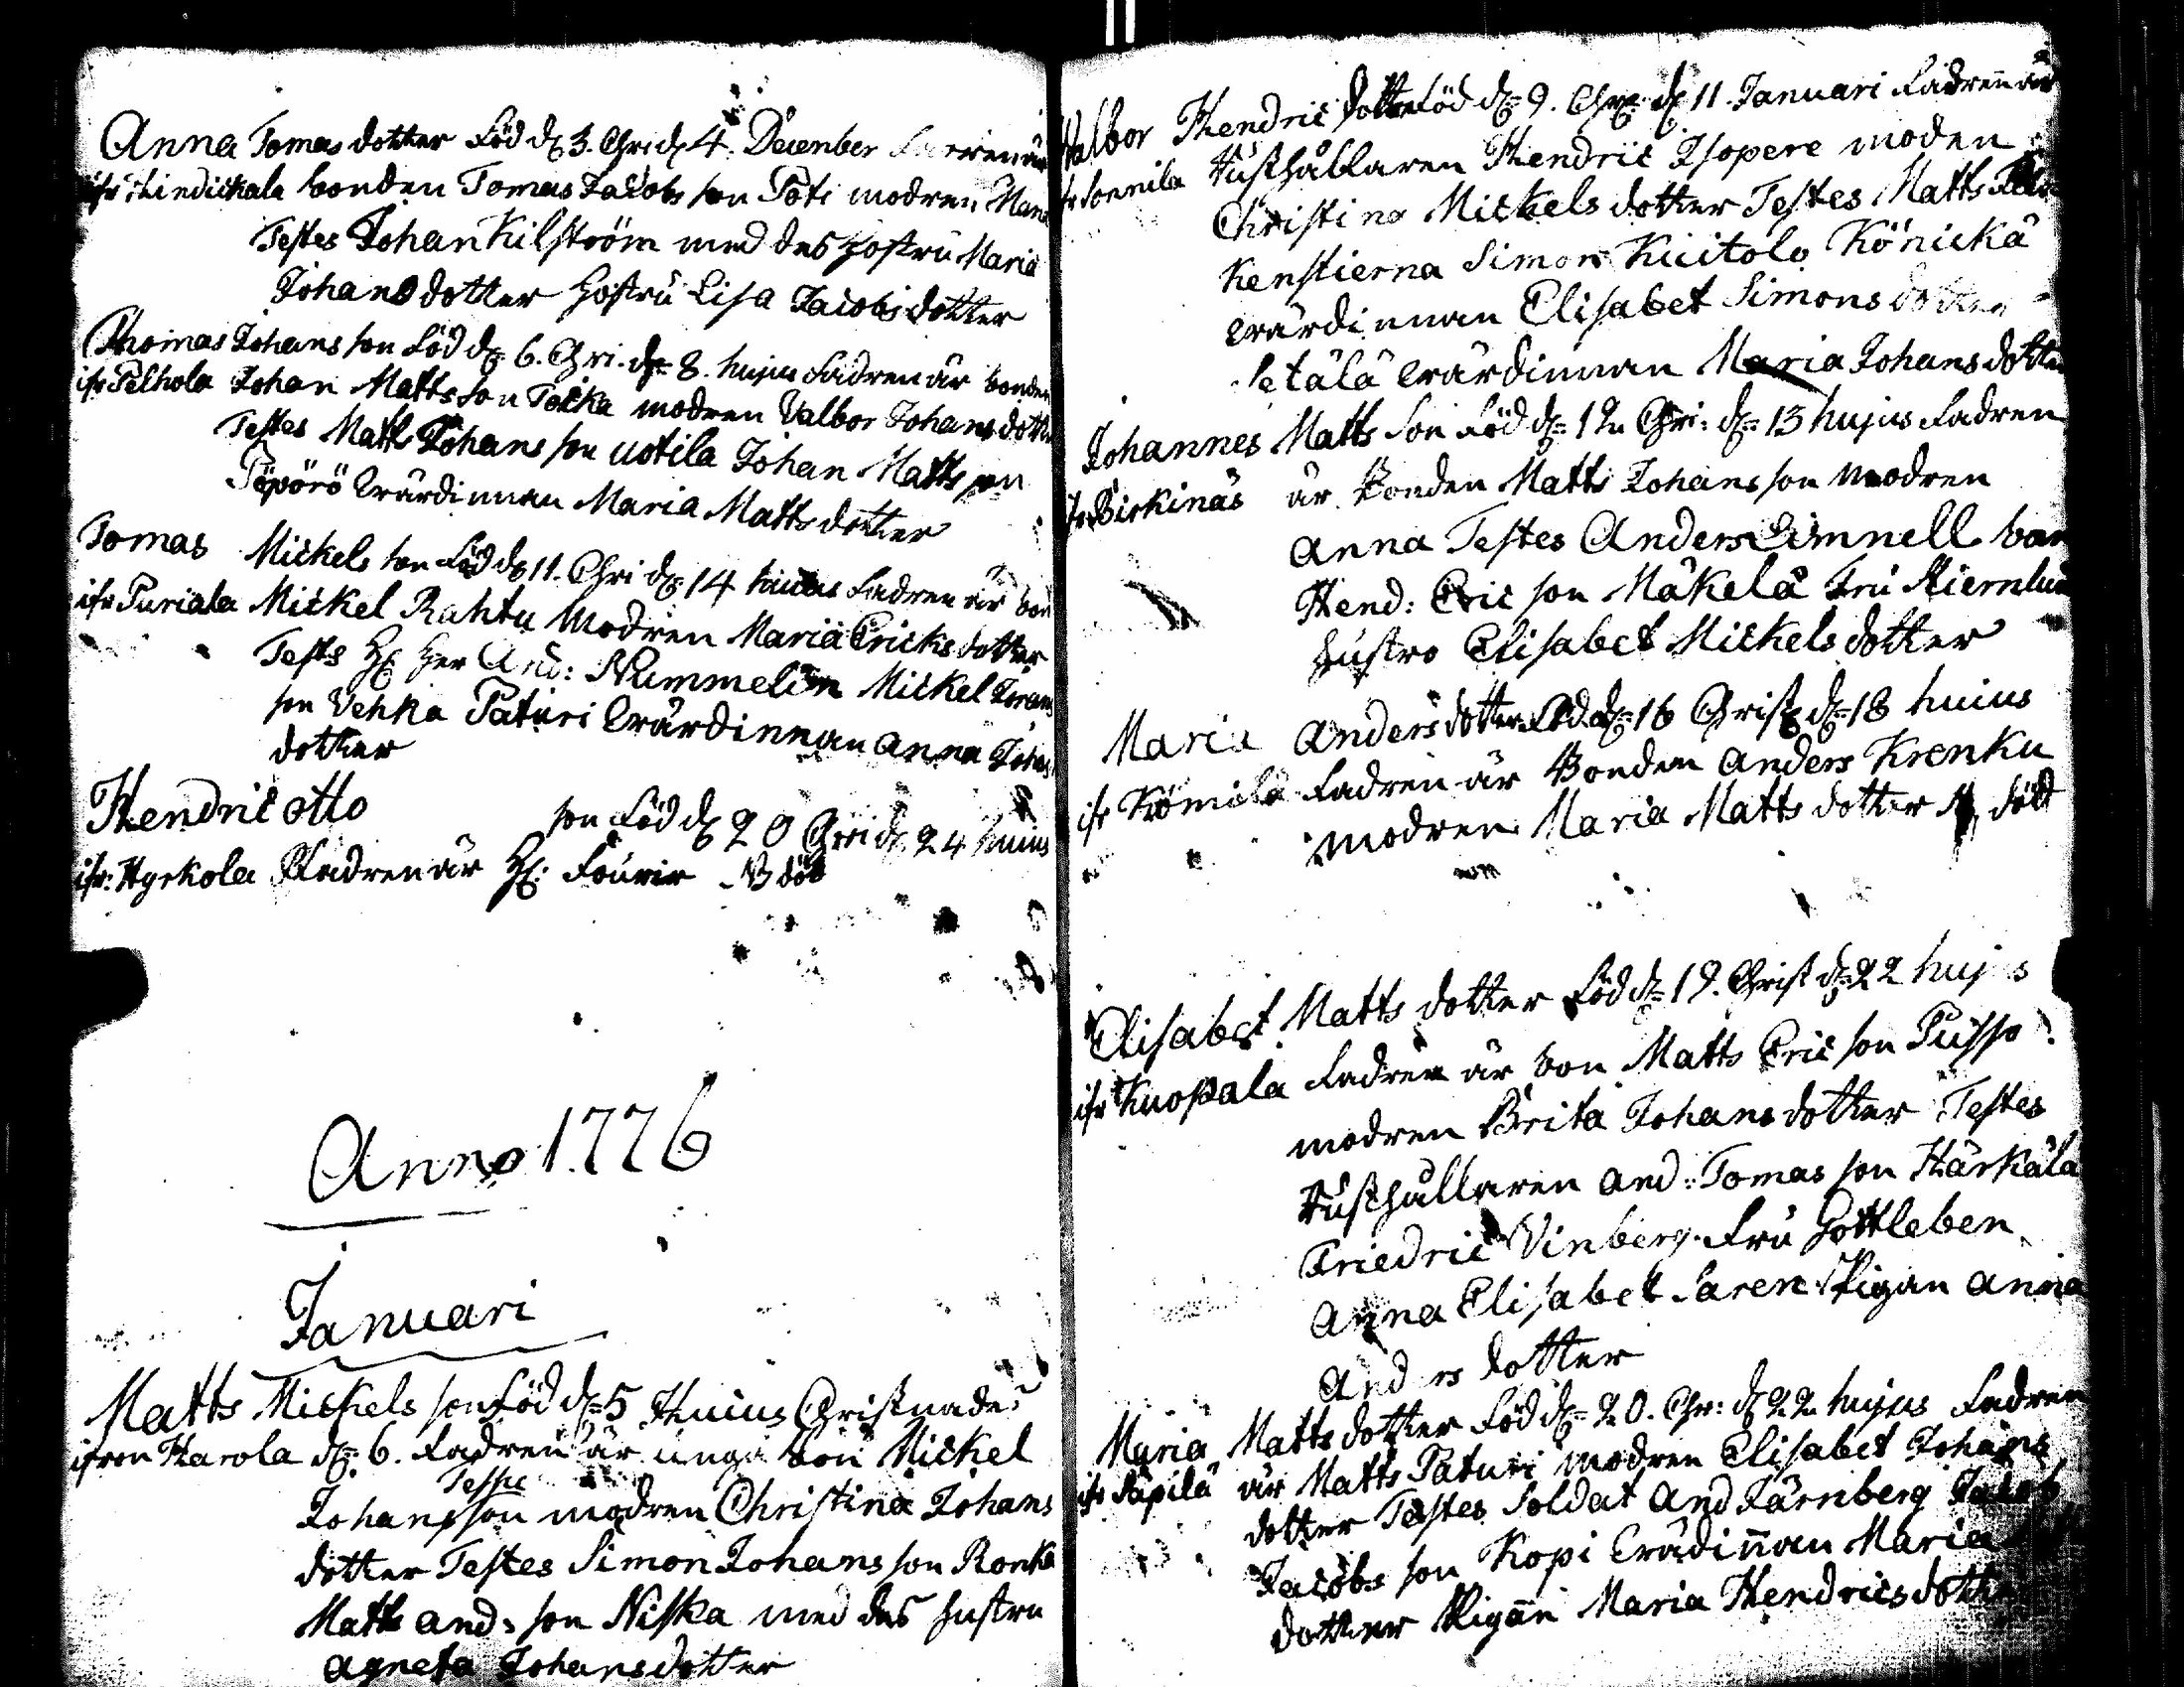 Anna Tomas dotter Föd dn 3. Chri dn 4. December Fadren är
ifr Lindickala bonden Tomas Jacobs son Toti modren Maria
Testes Johan Kilström med des Hostru Maria
Johans dotter Hostru Lisa Jacobs dotter
Thomas Johans son Föd dn 6. Chri. dn 8. hujus Fadren är bonden
ifr Pelhola Johan Matts son Tocka modren Valbor Johans dotter
Testes Matts Johans son Uotila Johan Matts son
Töpörö Värdinnan Maria Matts dotter
Tomas Mickels son Föd dn 11. Chri dn 14 huius Fadren är bon
ifr Puriala Mickel Rahtu Modren Maria Ericks dotter
Tests Hr Her And: Nummelin Mickel Görans
son Vehka Paturi Värdinnan Anna Johans
dotter
Hendric Otto son Föd dn 20 Chri dn 24 huius
ifr: Hyrkola Fadren är Hr: Fourir NB död
Anno 1776
Januari
Matts Mickels son Föd dn 5 Huius Christnades
ifron Harola dn 6. Fadren är unga bon Mickel
Tesse
Johans son modren Christina Johans
dotter Testes Simon Johans son Ronka
Matts And: son Niska med des hustru
Agneta Johans dotter
Valbor Hendrics dotter Föd dn 9. Chrs dn 11. Januari Fadren är
ifr Sonnila Rusthållaren Hendric Isopere moden
Christina Mickels dotter Testes Matts
Kenstierna Simon Kuitolo Könickä
Värdinnan Elisabet Simons dotter
Setälä Värdinnan Maria Johans dotter
Johannes Matts son Föd dn 12 Chri: dn 13 hujus Fadren
ifr Birkinäs är Bonden Matts Johans son Modren
Anna Testes Anders Limnell bon
Hend: Eric son Mäkelä Fru Stiernlund
hustro Elisabet Mickels dotter
Maria Anders dotter Föd dn 16 Christ dn 18 huius
ifr Kömilä Fadren är Bonden Anders Krenku
modren Maria Matts dotter död
Elisabet Matts dotter Föd dn 19. Christ dn 22 hujus
ifr Kuopala Fadren är bon Matts Eric son Pusso
modren Brita Johans dotter Testes
Rusthållaren And: Tomas son Härkälä
Friedric Vinberg. Fru Gottleben
Anna Elisabet Saren Pigan Anna
Anders dotter
Maria Matts dotter Föd dn 20. Chr: dn 22 hujus Fadren
ifr Säpilä är Matts Paturi modren Elisabet Johans
dotter Testes Soldat And Järnberg Jacob
Jacobs son Kopi Värdinnan Maria
dotter Pigan Maria Hendrics dotter